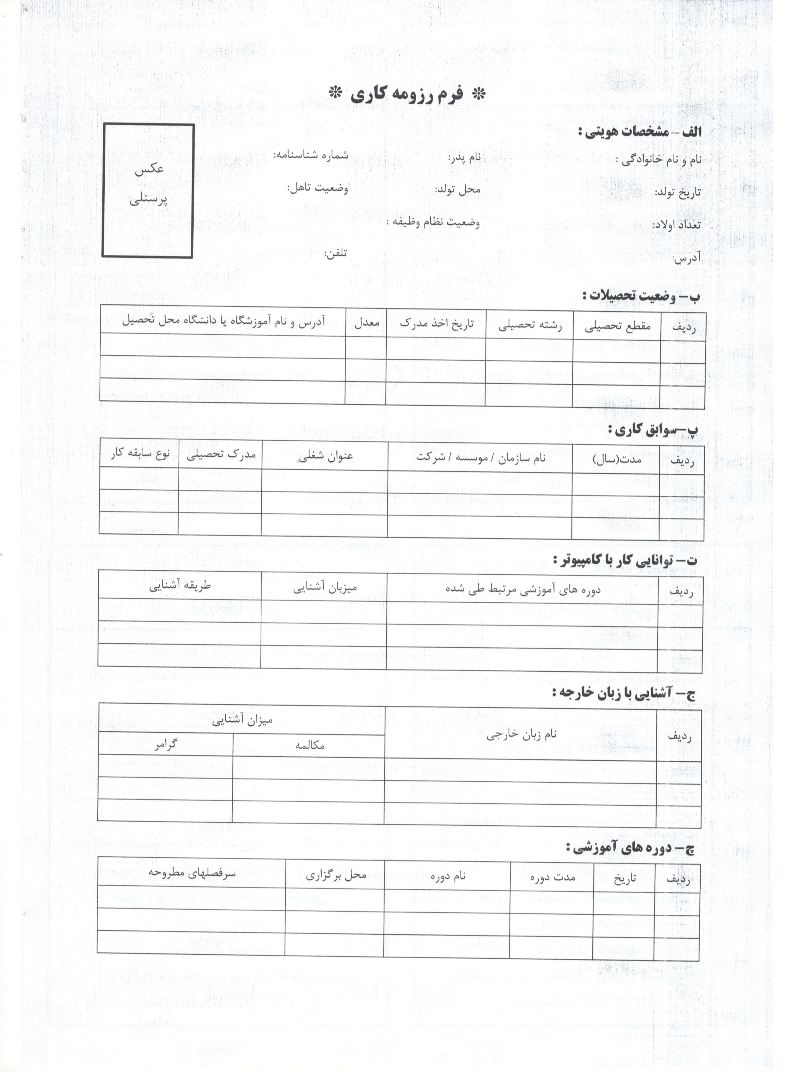 ❊ فرم رزومه کاری ❊
الف – مشخصات هویتی :
نام و نام خانوادگی : نام پدر: شماره شناسنامه:
تاریخ تولد: محل تولد: وضعیت تاهل:
تعداد اولاد: وضعیت نظام وظیفه :
آدرس: تلفن:
عکس
پرسنلی
ب – وضعیت تحصیلات :
ردیف مقطع تحصیلی رشته تحصیلی تاریخ اخذ مدرک معدل آدرس و نام آموزشگاه یا دانشگاه محل تحصیل
پ–سوابق کاری :
ردیف مدت(سال) نام سازمان / موسسه / شرکت عنوان شغلی مدرک تحصیلی نوع سابقه کار
ت– توانایی کار با کامپیوتر :
ردیف دوره های آموزشی مرتبط طی شده میزبان آشنایی طریقه آشنایی
ج– آشنایی با زبان خارجه :
ردیف نام زبان خارجی میزان آشنایی
مکالمه گرامر
چ– دوره های آموزشی :
ردیف تاریخ مدت دوره نام دوره محل برگزاری سرفصلهای مطروحه